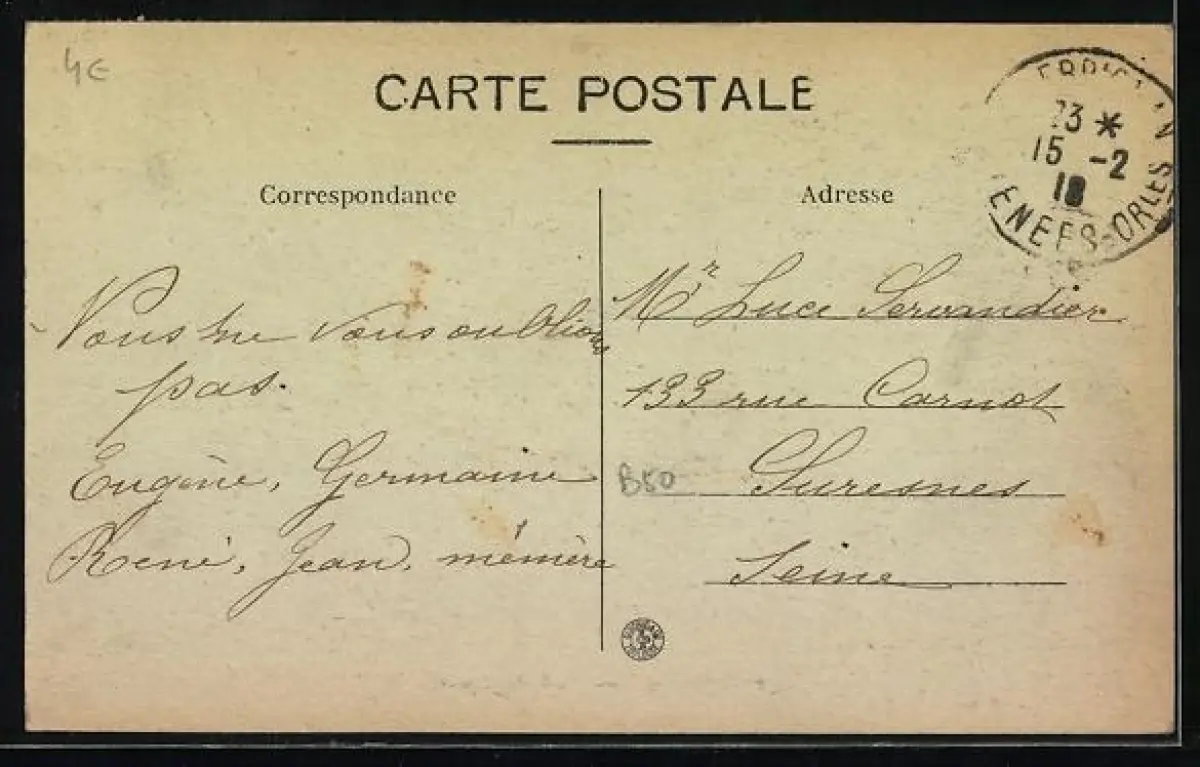 4€
CARTE POSTALE
Correspondance
Vous ne vous oublions
pas.
Eugène, Germaine
René, Jean, mémère
Adresse
Mr Luce Servandier
133 rue Carnot
B50 Suresnes
Seine
*
15 -2
18
ENEES-ORLES